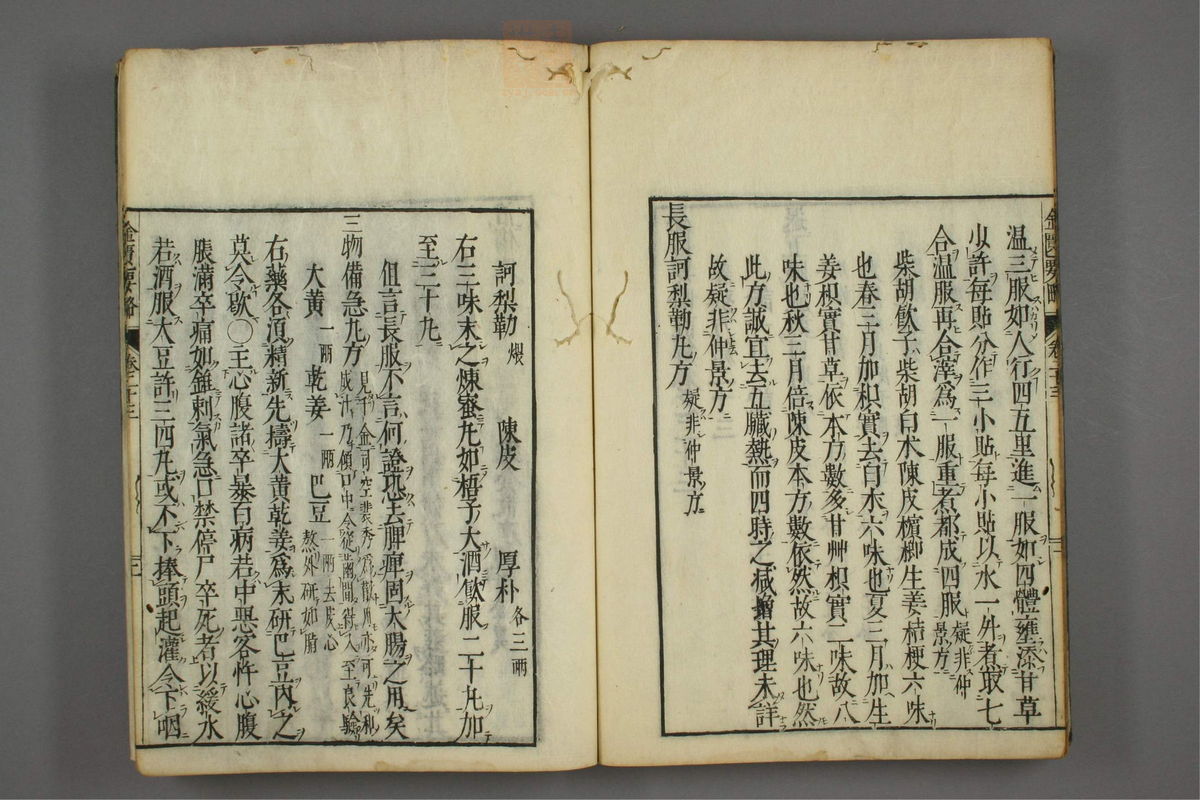 温三服如人行四五里進一服如四體壅添甘草
少許每貼分作三小貼每小貼以水一升煮取七
合温服再合滓為一服重煮都成四服疑非仲景方
柴胡飲子柴胡白朮陳皮檳榔生姜桔梗六味
也春三月加枳實去白朮六味也夏三月加生
姜枳實甘草依本方數多甘艸枳實二味故八
味也秋三月倍陳皮本方數依然故六味也然
此方誠宜去五臟熱而四時之減增其理未詳
故疑非仲景方
長服訶梨勒丸方 疑非仲景方
金匱要略 卷二十三
訶梨勒煨 陳皮 厚朴各三兩
右三味末之煉蜜丸如梧子大酒飲服二十丸加
至三十丸
但言長服不言何證恐去脾痺固大腸之用矣
三物備急丸方 見千金司空裴秀為散用亦可先和成汁乃傾口中令從齒間得入至良驗
大黃一兩 乾姜一兩 巴豆一兩去皮心熬外研如脂
右藥各須精新先擣大黃乾姜為末研巴豆內之
莫令歇〇主心腹諸卒暴百病若中惡客忤心腹
脹滿卒痛如錐刺氣急口禁停尸卒死者以緩水
若酒服大豆許三四丸或不下捧頭起灌令下咽
金匱要略 卷二十三